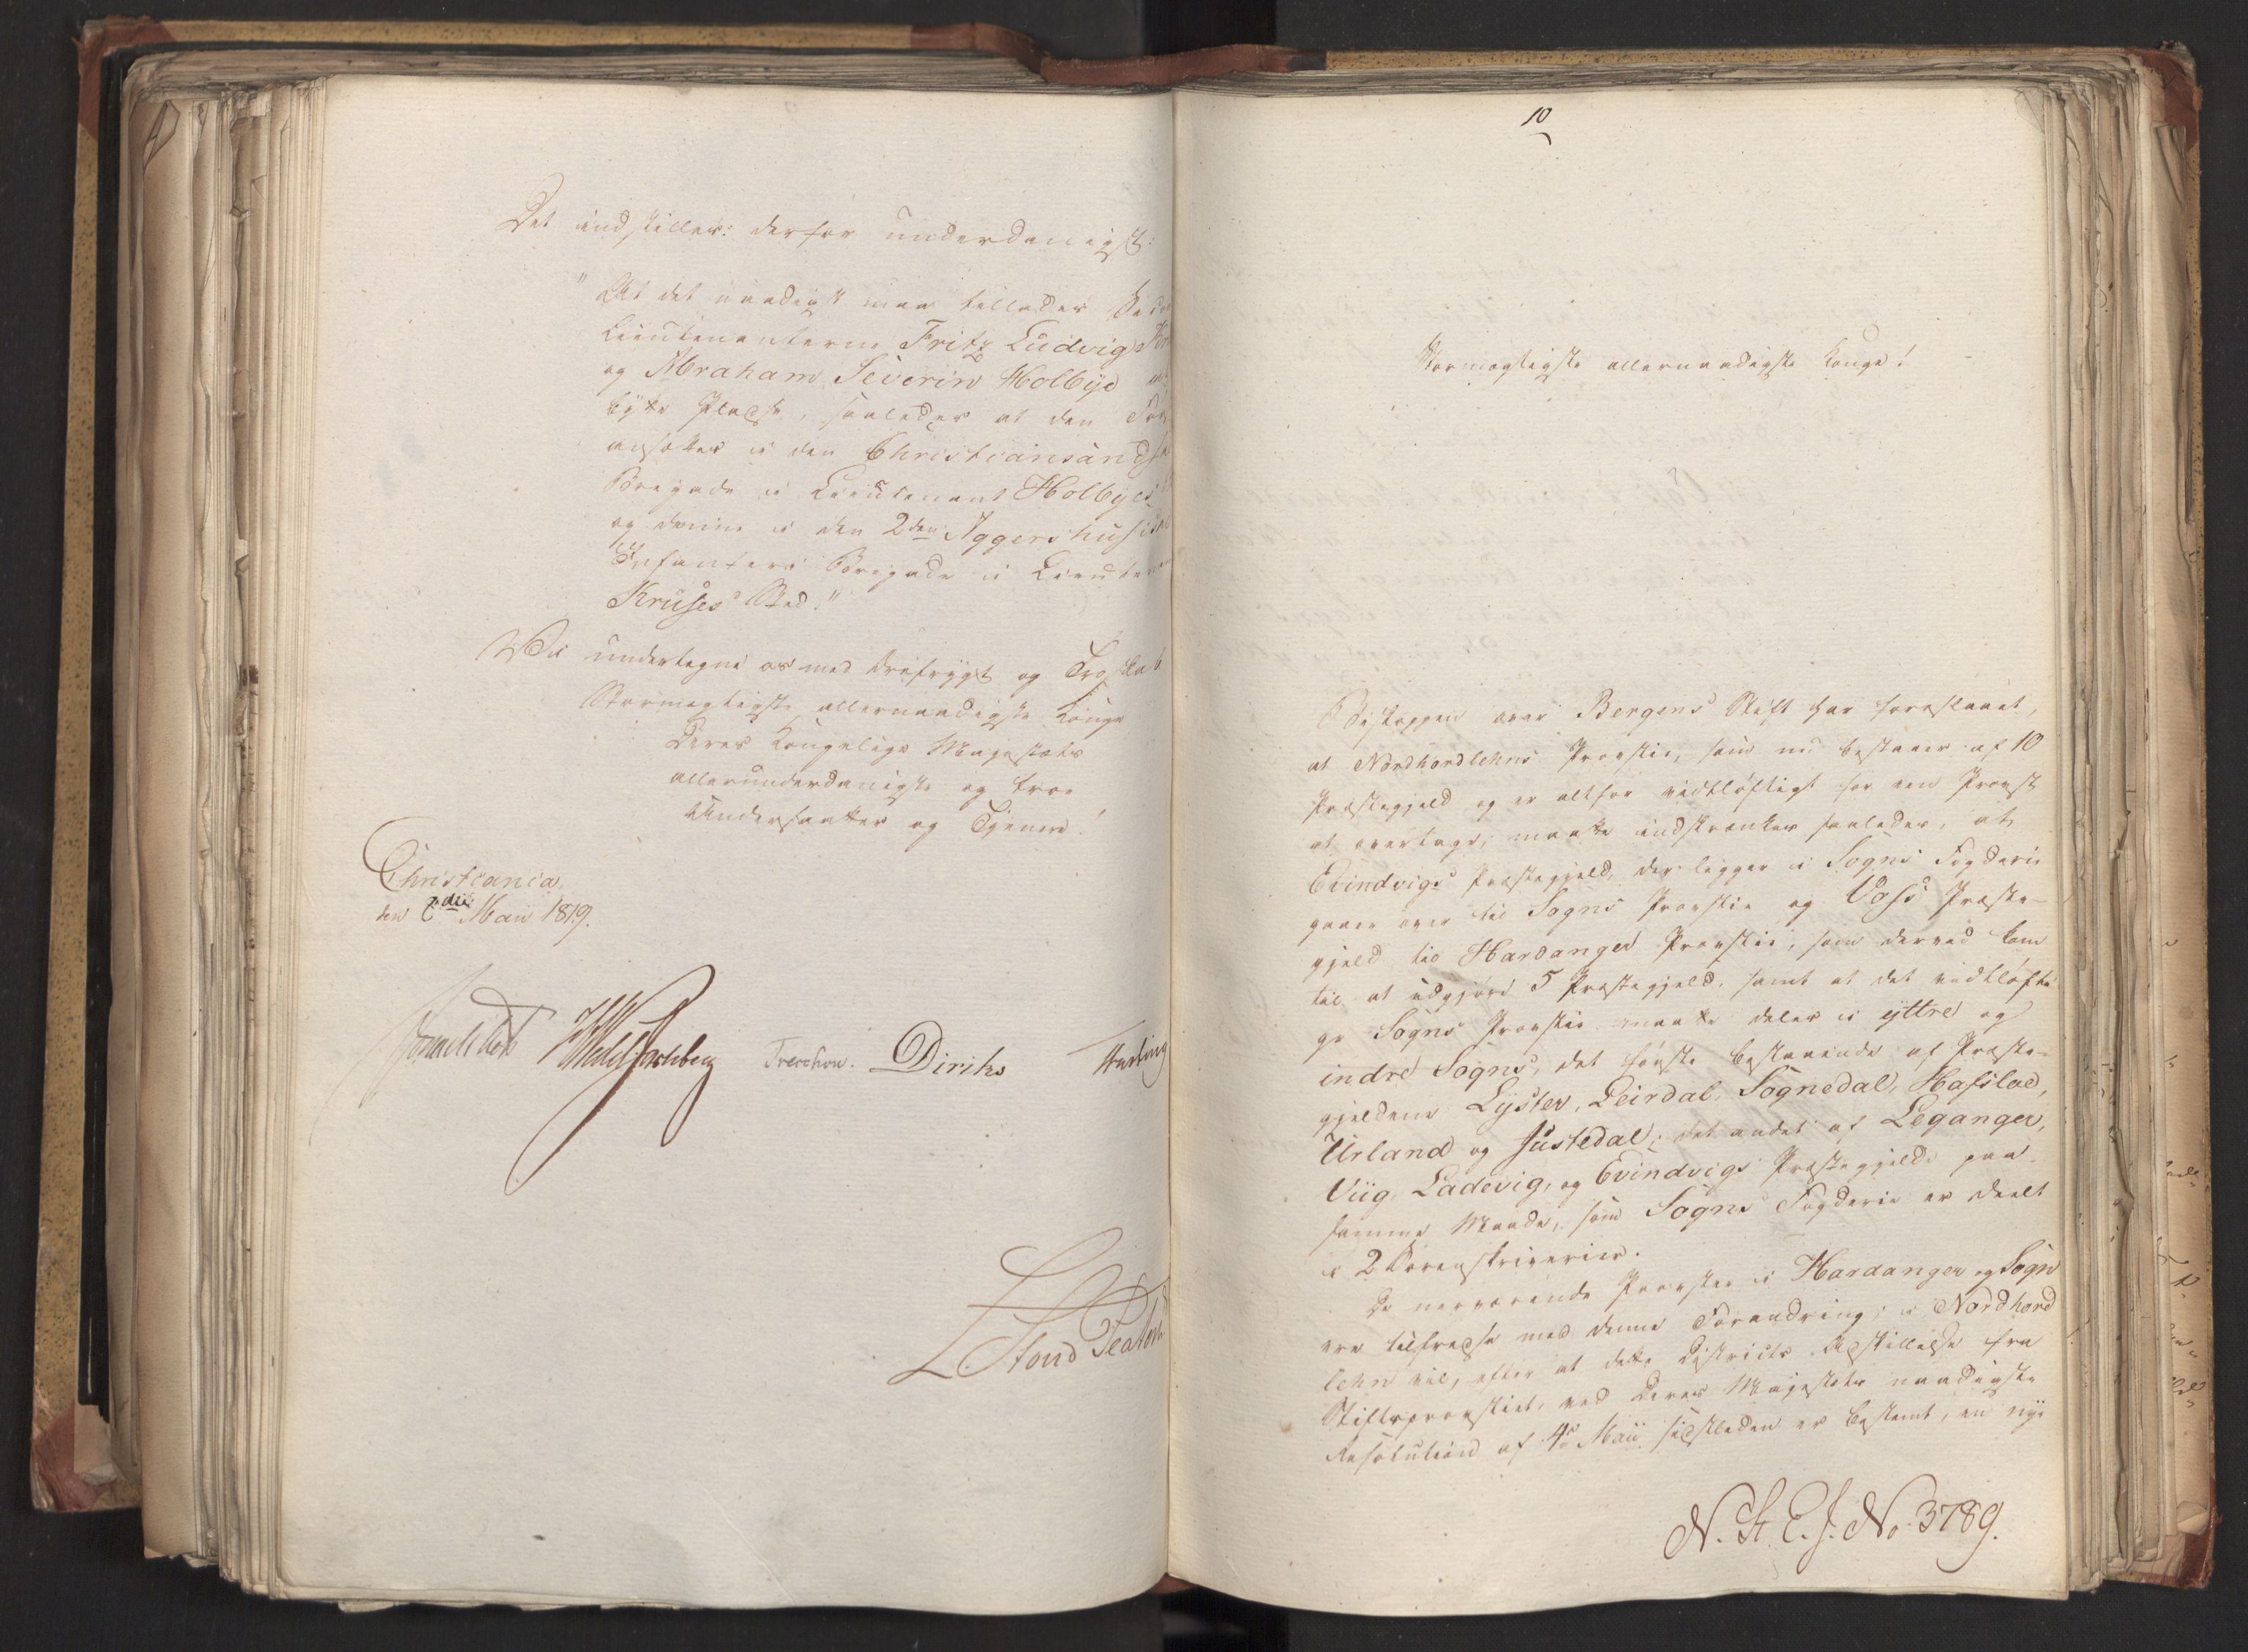 Det indstilles derfor underdanigst:
"At det naadigst maa tillades Second
Lieutenanterne Fritz Ludvig
og Abraham Severin Holbye at
bytte Pladse, saaledes at den
ansættes i den Christiansandske
Brigade i Lieutenant Holbyes
og denne i den 2den Aggershusiske
Infanteri Brigade i Lieutenant
Kruses Sted."
Vi undertegne os med Ærefrygt og Troskab
Stormægtigste allernaadigste Konge
Deres Kongelige Majestæts
allerunderdanigste og troe
Undersaatter og Tjenere.
Christiania,
den die Maii 1819.
Treschow. Diriks
10
Stormægtigste allernaadigste Konge!
Biskoppen over Bergens Stift har foreslaaet,
at Nordhordlehns Provstie, som nu bestaaer af 10
Præstegjeld og er altfor vidtløftigt for een Provst
at overtage, maatte indskrænkes saaledes, at
Evindvigs Præstegjeld, der ligger i Sogns Fogderie
gaaer over til Sogns Provstie og Voss Præste-
gjeld til Hardanger Provstie, som derved kom
til at udgjøre 5 Præstegjeld, samt at det vidtløfti
ge Sogns Provstie maatte deles i yttre og
indre Sogns, det første bestaaende af Præste-
gjeldene Lyster, Leirdal, Sognedal, Hafsloe,
Urland og Justedal; det andet af Leganger,
Viig, Ladevig, og Evindvigs Præstegjelde paa
samme Maade, som Sogns Fogderie er deelt
i 2 Sorenskriverier.
De nærværende Provster i Hardanger og Sogn
ere tilfredse med denne Forandring; i Nordhord
lehn vil, efter at dette Districts Adskillelse fra
Stiftsprovstiet, ved Deres Majestæts naadigste
Resolution af 4de Maii sidstleden er bestemt, en nye
N. K. E. J. No. 3789.